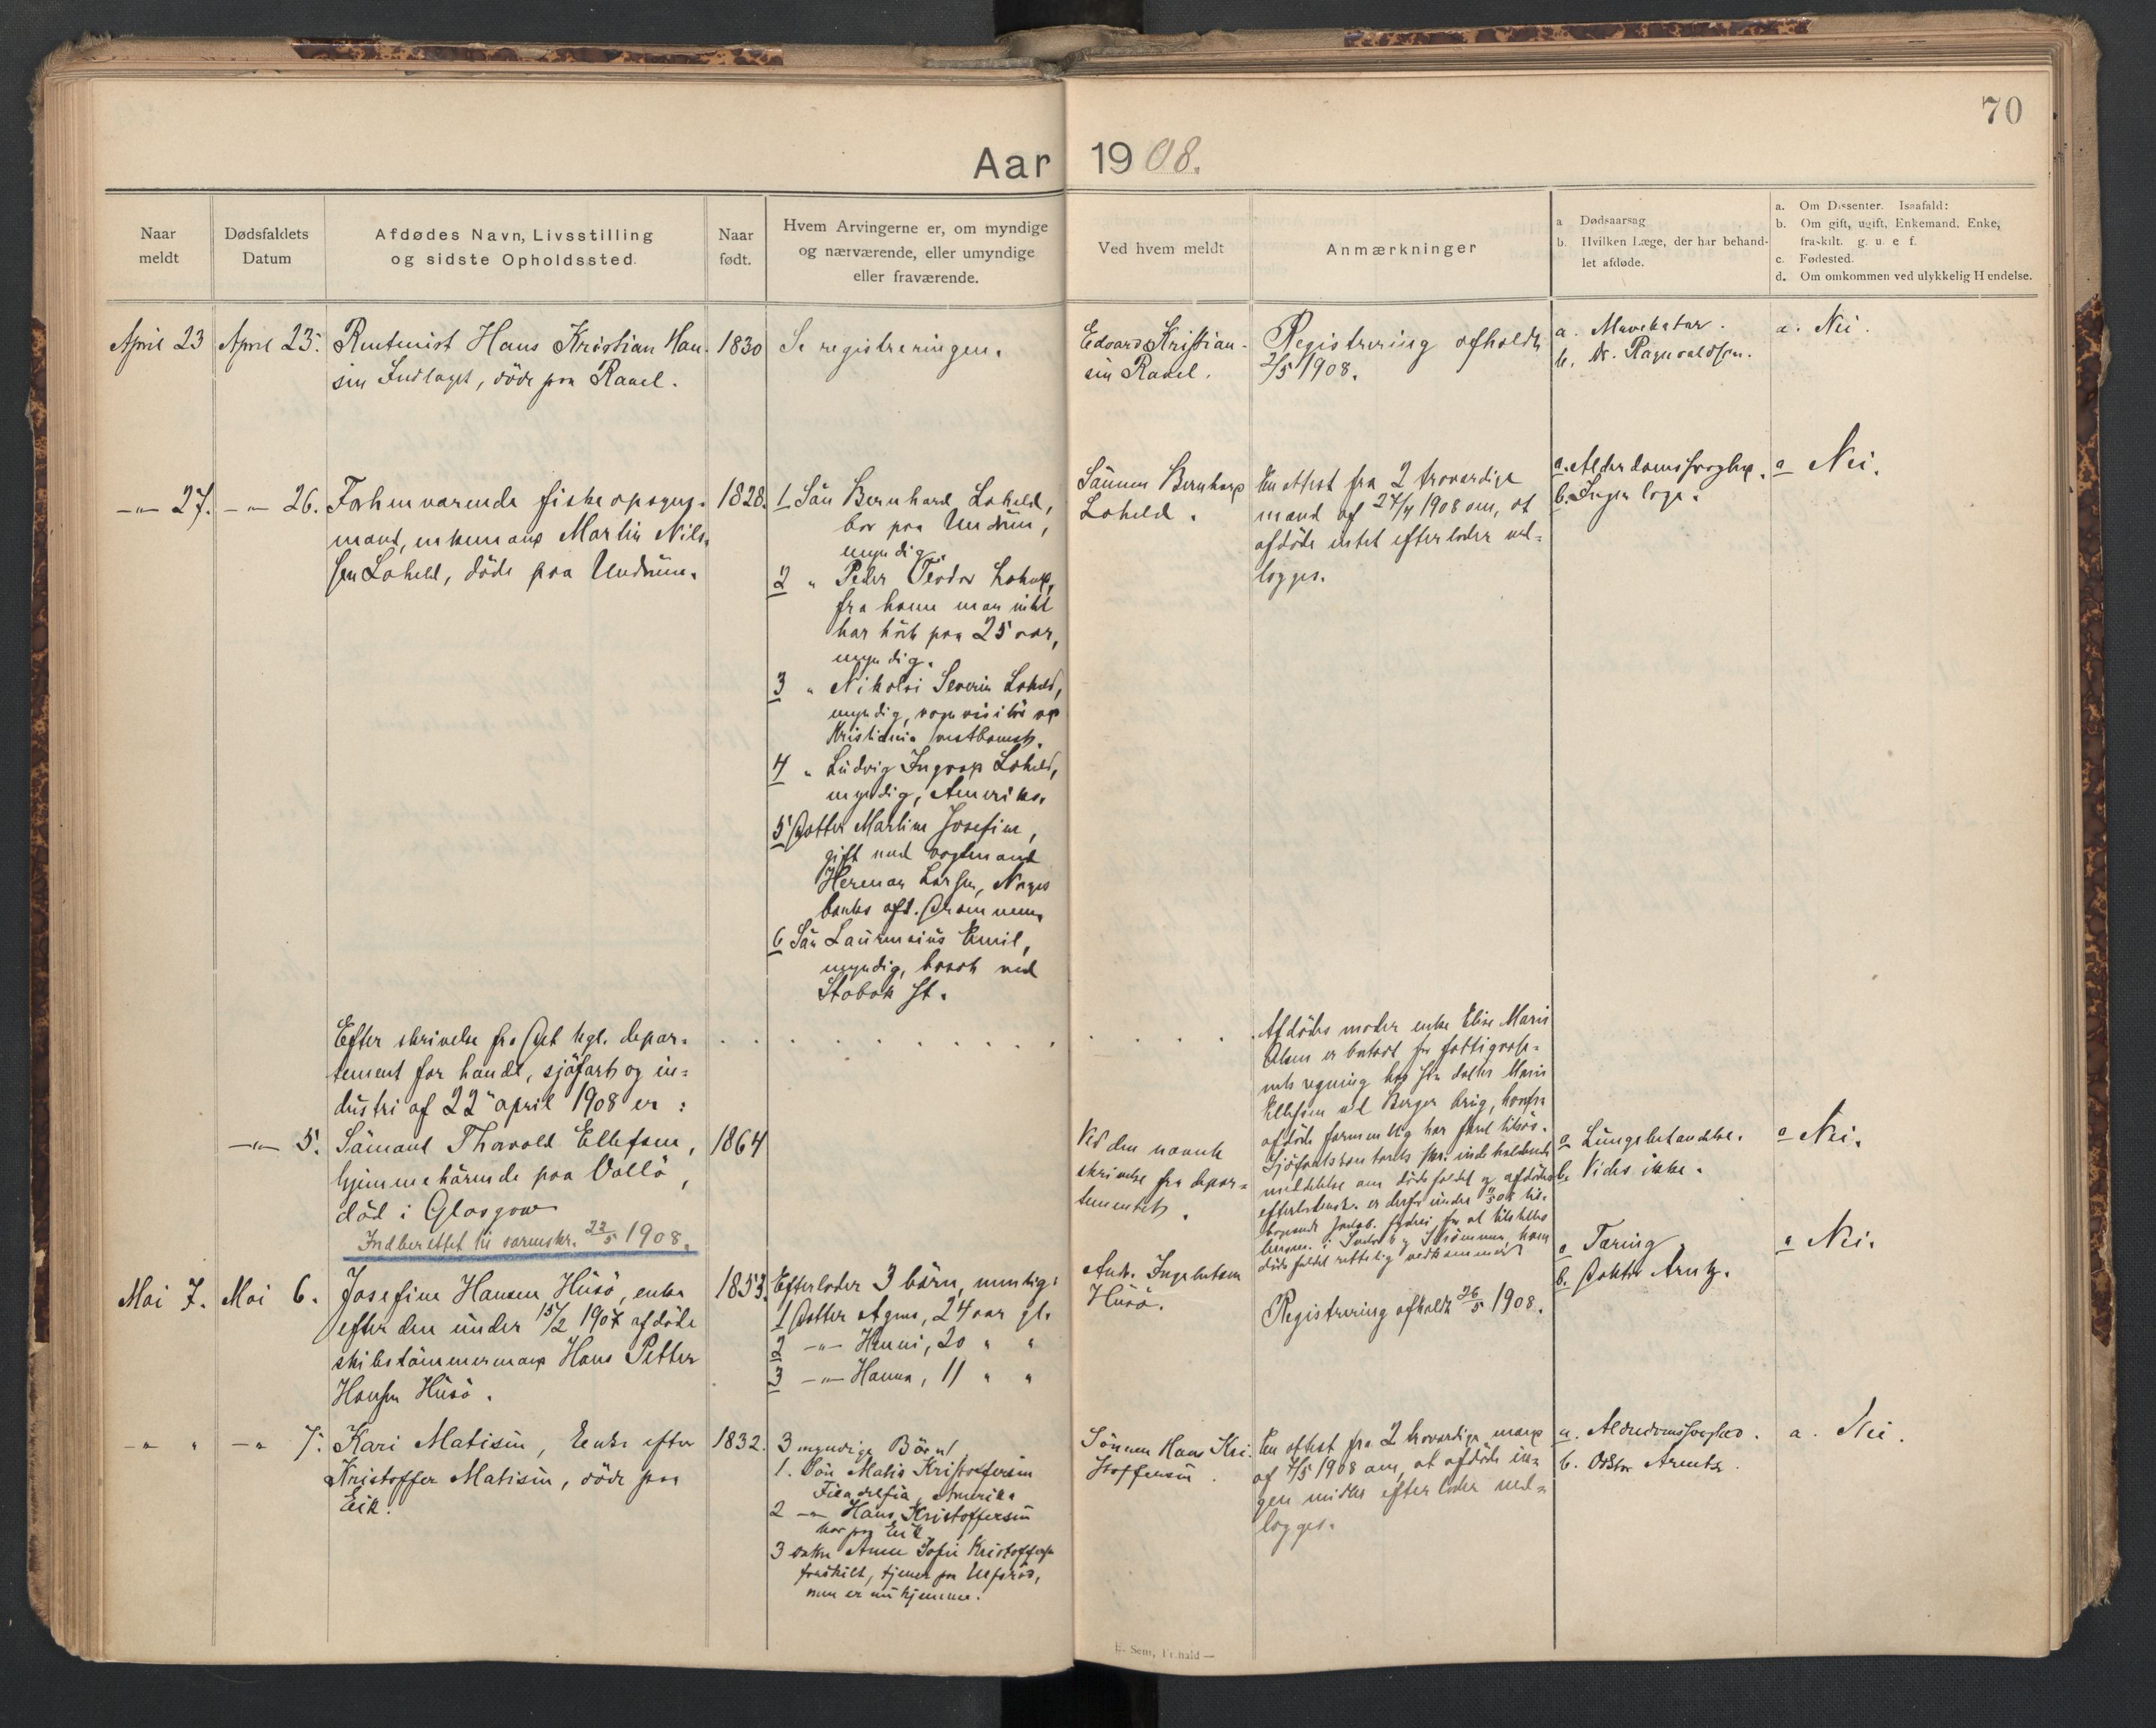 70
Aar 1908.
Naar
meldt
Dødsfaldets
Datum
Afdødes Navn, Livsstilling
og sidste Opholdssted.
Naar
født.
Hvem Arvingerne er, om myndige
og nærværende, eller umyndige
eller fraværende.
Ved hvem meldt
Anmærkninger
a Dødsaarsag
b. Hvilken Læge, der har behand-
let afdøde.
a. Om Dissenter. Isaafald:
b. Om gift, ugift, Enkemand, Enke,
fraskilt. g. u. e f.
c. Fødested.
d. Om omkommen ved ulykkelig Hendelse.
April 23
April 23.
Rentenist Hans Kristian Han-
sen Indlaget, döde paa Ravel.
1830
Se registreringen.
Edvard Kristian-
sen Ravel.
Registrering afholdt
2/5 1908.
a. Mavekatar.
b. Dr. Ragnvaldsen.
a. Nei.
-"- 27.
-"- 26.
Forhenværende fiskeopsyns-
mand, enkemand Martin Nils-
sen Loheld, döde paa Undrum.
1828.
1 Sön Bernhard Loheld,
bor paa Undrum,
myndig.
2 " Peder Teodor Loheld,
fra hvem man intet
har hört paa 25 aar,
myndig.
3 " Nikolai Severin Loheld,
myndig, vognvisitör ved
Kristiania vestbanest.
4 " Ludvig Ingvap Loheld,
myndig, Amerika.
5 Datter Martine Josefine,
gift med vogtmand
Herman Larsen, Norges
banks afd. Drammen.
6 Sön Laurensius Emil,
myndig, bosat ved
Stabæk St.
Sönnen Bernhard
Loheld.
En attest fra 2 troværdige
mænd af 27/4 1908 om, at
afdöde intet efterlader ved-
lægges.
a. Alderdomssvaghed.
b. Ingen læge.
a Nei.
Efter skrivelse fra Det kgl. depar-
tement for handel, sjöfart og in-
dustri af 22 april 1908 er:
-"- 5.
Sömand Tharald Ellefsen,
hjemmehörende paa Vallö,
död i Glasgow
Indberettet til sorenskr. 22/5 1908.
1864
Ved den nævnte
skrivelse fra depar-
tementet.
Afdödes moder enke Elise Marie
Olsen er bortsat for fattigvæse-
nets regning hos sin datter Marie
Ellefsen ved Berger brug, hvorfra
afdöde formentlig har faret tilsjös.
Sjöfartskontorets skr. indeholdende
meddelelse om dödsfaldet og afdödes
a Lungebetændelse.
b. Vides ikke.
a Nei.
Mai 7.
Mai 6.
Josefine Hansen Husö, enke
efter den under 15/2 1907 afdöde
skibstömmermand Hans Petter
Hansen Husö.
1853.
Efterlader 3 börn, nemlig:
1 Datter Agnes, 24 aar gl.
2 -"- Henni, 20 " "
3 -"- Hanna, 11 " "
Ant. Ingebretsen
Husö.
Registrering afholdt 26/5 1908.
a Tæring.
b. Doktor Arntz.
a Nei.
-"- "
-"- 7.
Kari Matisen, Enke efter
Kristoffer Matisen, döde paa
Eik.
1832.
3 myndige Börn!
1. Sön Matis Kristoffersen
Filadelfia, Amerika
2 -"- Hans Kristoffersen
bor paa Eik
3 datter Anne Sofie Kristoffersen
fraskilt, tjener paa Ulfsröd,
men er nu hjemme.
Sönnen Hans Kri-
stoffersen.
En attest fra 2 troværdige mænd
af 7/5 1908 om, at afdöde in-
gen midler efterlader ved-
lægges.
a. Alderdomssvaghed.
b. Doktor Arentz.
a. Nei.
E. Sem, Fr.hald —